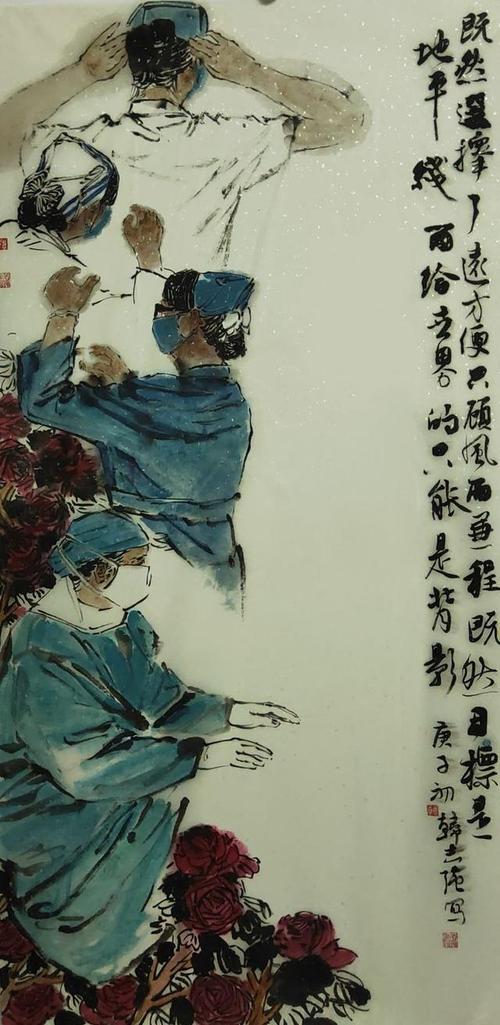 既然選擇了遠方便只顧風雨兼程既然目標是
地平綫 而給世界的只能是背影
庚子初 韓志強寫